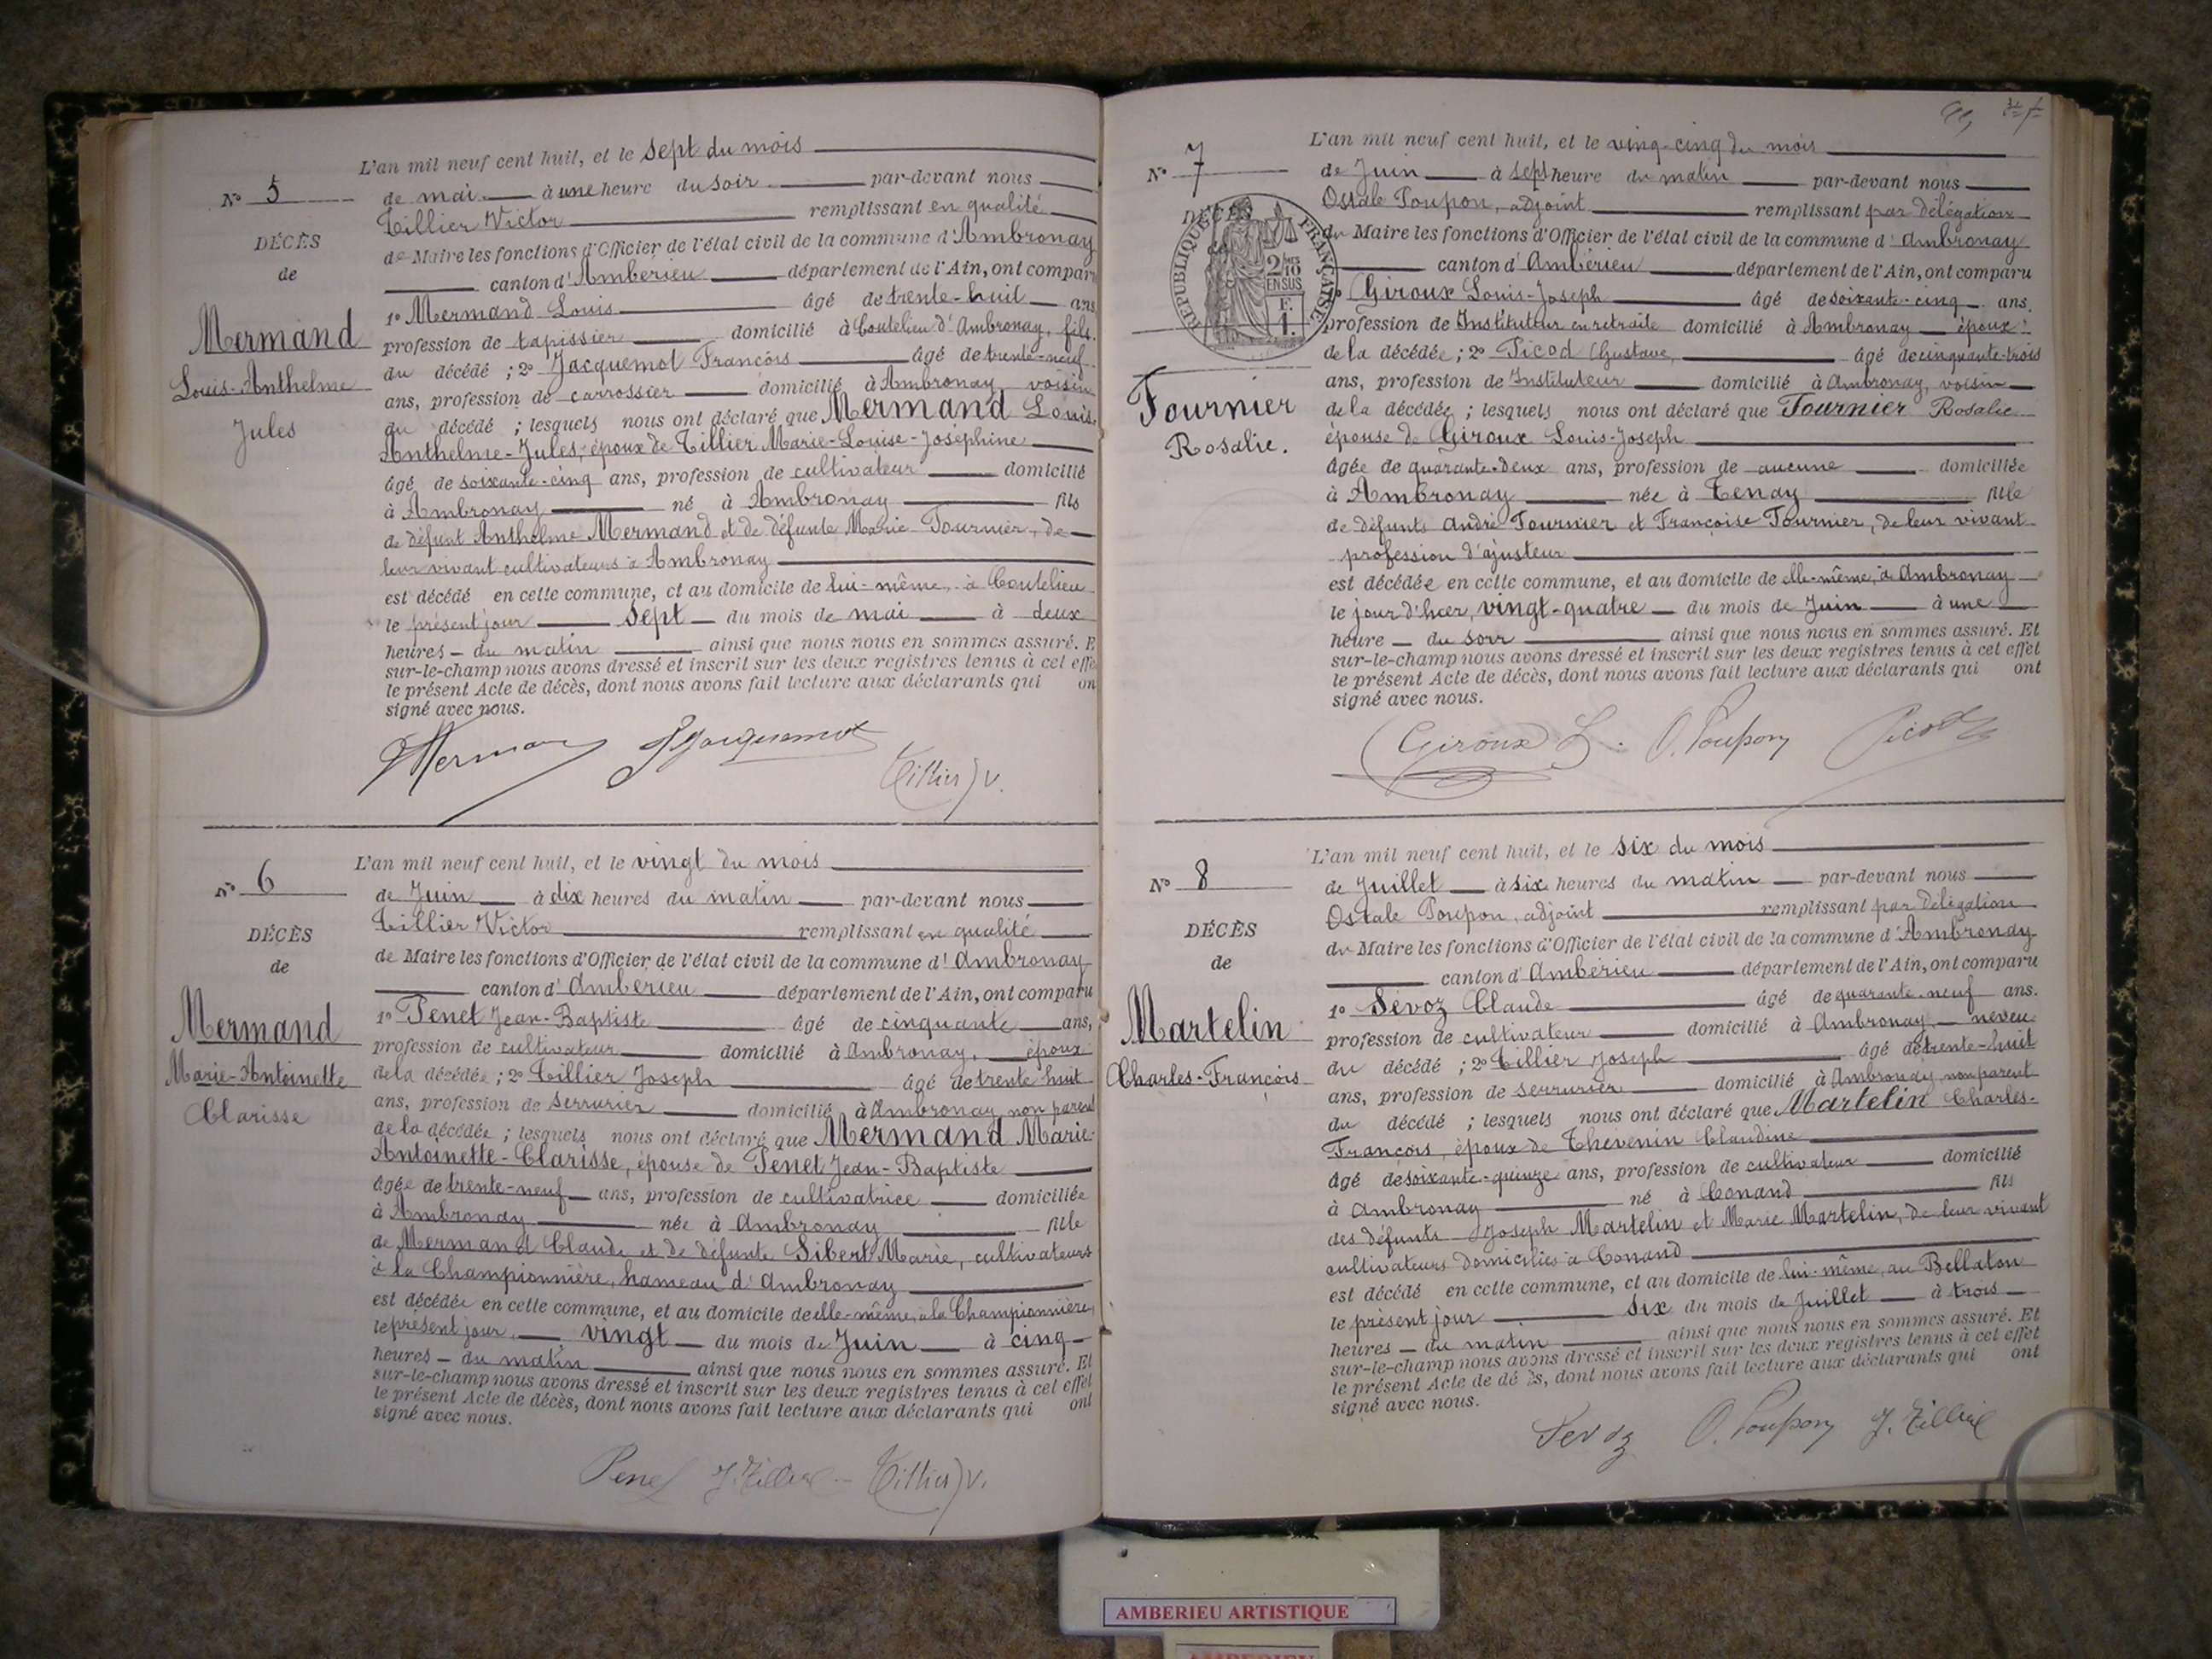 L'an mil neuf cent huit, et le sept du mois
N° 5 de mai à une heure du soir par-devant nous
Tillier Victor remplissant en qualité
DÉCÈS de Maire les fonctions d'Officier de l'état civil de la commune d'Ambronay
de canton d'Ambérieu département de l'Ain, ont comparu
1° Mermand Louis âgé de trente-huit ans
Mermand profession de tapissier domicilié à Coutelieu d'Ambronay, fils
Louis-Anthelme du décédé ; 2° Jacquemot François âgé de trente-neuf
Jules ans, profession de carrossier domicilié à Ambronay, voisin
du décédé ; lesquels nous ont déclaré que Mermand Louis
Anthelme-Jules, époux de Tillier Marie-Louise-Joséphine
âgé de soixante-cinq ans, profession de cultivateur domicilié
à Ambronay né à Ambronay fils
de défunt Anthelme Mermand et de défunte Marie Fournier, de
leur vivant cultivateurs à Ambronay
est décédé en cette commune, et au domicile de lui-même, à Coutelieu
le présent jour sept du mois de mai à deux
heures du matin ainsi que nous nous en sommes assuré. E
sur-le-champ nous avons dressé et inscrit sur les deux registres tenus à cet effe
le présent Acte de décès, dont nous avons fait lecture aux déclarants qui on
signé avec nous.
Mermand Jacquemot Tillier V.
L'an mil neuf cent huit, et le vingt du mois
N° 6 de Juin à dix heures du matin par-devant nous
Tillier Victor remplissant en qualité
DÉCÈS de Maire les fonctions d'Officier de l'état civil de la commune d'Ambronay
de canton d'Ambérieu département de l'Ain, ont comparu
Mermand 1° Penet Jean-Baptiste âgé de cinquante ans,
profession de cultivateur domicilié à Ambronay, époux
Marie-Antoinette de la décédée ; 2° Tillier Joseph âgé de trente huit
Clarisse ans, profession de serrurier domicilié à Ambronay non parent
de la décédée ; lesquels nous ont déclaré que Mermand Marie-
Antoinette-Clarisse, épouse de Penet Jean-Baptiste
âgée de trente-neuf ans, profession de cultivatrice domiciliée
à Ambronay née à Ambronay fille
de Mermand Claude et de défunte Sibert Marie, cultivateurs
à la Championnière, hameau d'Ambronay
est décédée en cette commune, et au domicile de elle-même, à la Championnière,
le présent jour, vingt du mois de Juin à cinq
heures du matin ainsi que nous nous en sommes assuré. Et
sur-le-champ nous avons dressé et inscrit sur les deux registres tenus à cet effet
le présent Acte de décès, dont nous avons fait lecture aux déclarants qui ont
signé avec nous.
Penet J. Tillier Tillier V.
L'an mil neuf cent huit, et le ving-cinq du mois
N° 7 de Juin à sept heure du matin par-devant nous
Ostale Poupon, adjoint remplissant par délégation
DÉCÈS du Maire les fonctions d'Officier de l'état civil de la commune d'Ambronay
RÉPUBLIQUE FRANÇAISE
2/10 EN SUS
F. 1.
canton d'Ambérieu département de l'Ain, ont comparu
1° Giroux Louis-Joseph âgé de soixante-cinq ans.
profession de Instituteur en retraite domicilié à Ambronay époux
de la décédée ; 2° Picod Gustave, âgé de cinquante-trois
ans, profession de Instituteur domicilié à Ambronay, voisin
Fournier de la décédée ; lesquels nous ont déclaré que Fournier Rosalie
Rosalie. épouse de Giroux Louis-Joseph
âgée de quarante-deux ans, profession de aucune domiciliée
à Ambronay née à Tenay fille
de défunts André Fournier et Françoise Fournier, de leur vivant
profession d'ajusteur
est décédée en cette commune, et au domicile de elle-même, à Ambronay
le jour d'hier, vingt-quatre du mois de Juin à une
heure du soir ainsi que nous nous en sommes assuré. Et
sur-le-champ nous avons dressé et inscrit sur les deux registres tenus à cet effet
le présent Acte de décès, dont nous avons fait lecture aux déclarants qui ont
signé avec nous.
Giroux L. O. Poupon Picod
L'an mil neuf cent huit, et le six du mois
N° 8 de Juillet à six heures du matin par-devant nous
Ostale Poupon, adjoint remplissant par délégation
DÉCÈS du Maire les fonctions d'Officier de l'état civil de la commune d'Ambronay
de canton d'Ambérieu département de l'Ain, ont comparu
1° Sevoz Claude âgé de quarante-neuf ans.
Martelin profession de cultivateur domicilié à Ambronay, neveu
du décédé ; 2° Tillier Joseph âgé de trente-huit
Charles-François ans, profession de serrurier domicilié à Ambronay non parent
du décédé ; lesquels nous ont déclaré que Martelin Charles-
François, époux de Thevenin Claudine
âgé de soixante-quinze ans, profession de cultivateur domicilié
à Ambronay né à Conand fils
des défunts Joseph Martelin et Marie Martelin, de leur vivant
cultivateurs domiciliés à Conand
est décédé en cette commune, et au domicile de lui-même, au Bellaton
le présent jour six du mois de Juillet à trois
heures du matin ainsi que nous nous en sommes assuré. Et
sur-le-champ nous avons dressé et inscrit sur les deux registres tenus à cet effet
le présent Acte de dé ès, dont nous avons fait lecture aux déclarants qui ont
signé avec nous.
Sevoz O. Poupon J. Tillier
AMBERIEU ARTISTIQUE
AMBERIEU